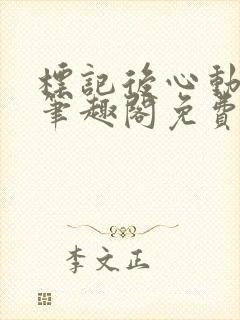 標記後心動
筆趣閣免費
李文正